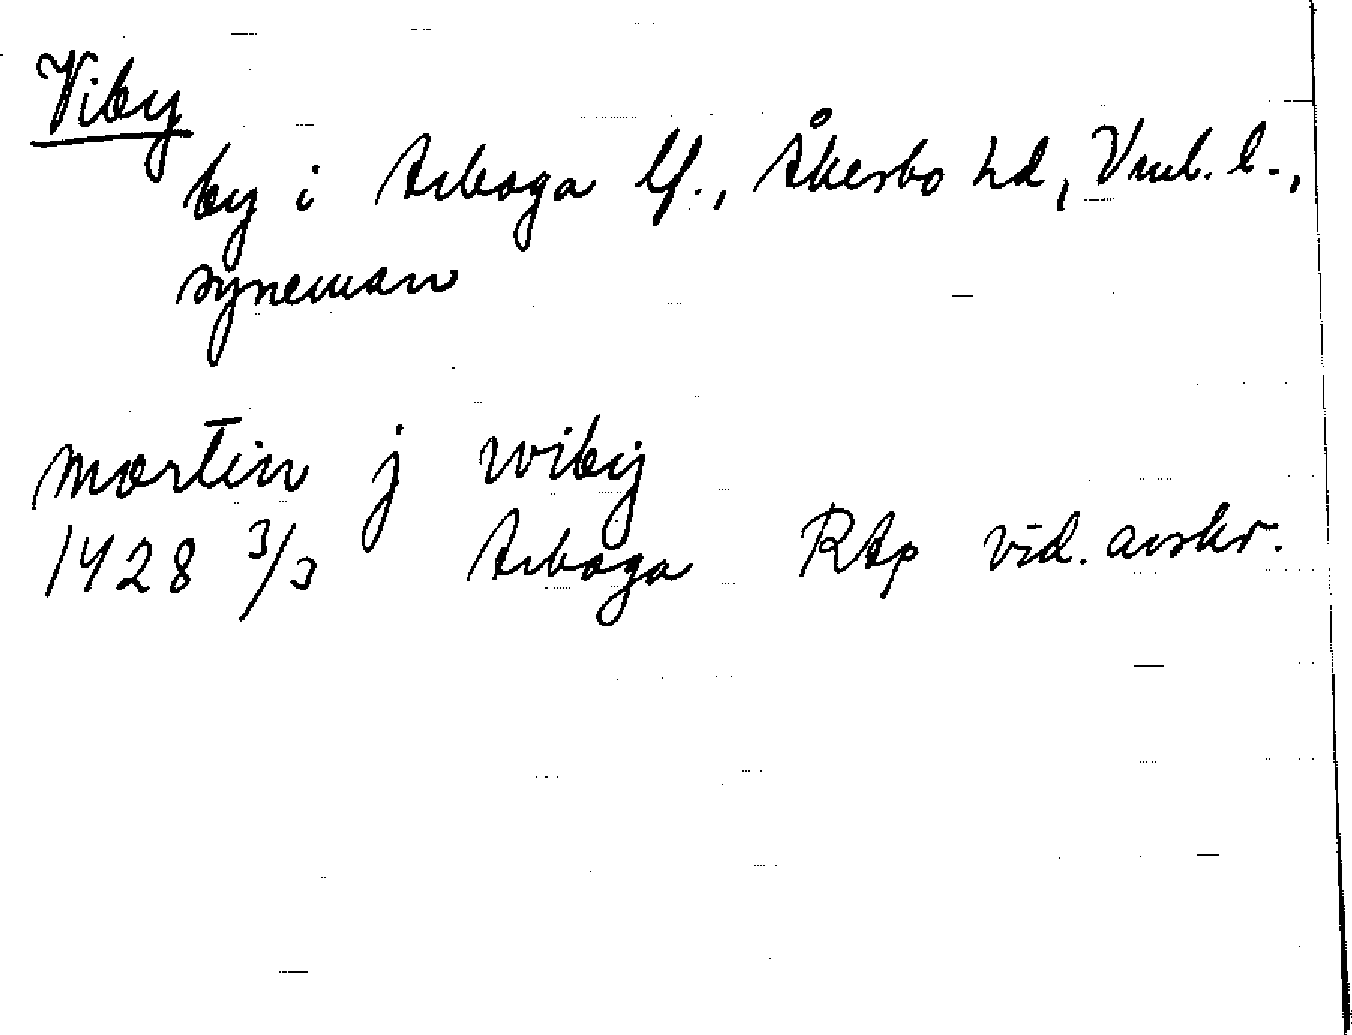 Viby
by i Arboga lf., Åkerbo hd, Vml. l.,
syneman
mortin j wibij
1428 3/3 Arboga RAp vid. avskr.